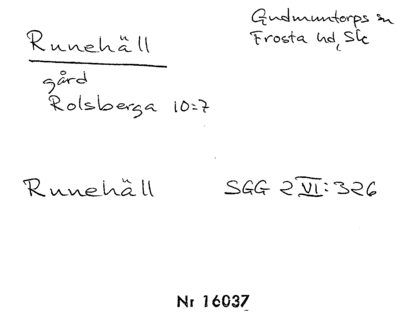 Runehäll
Gudmuntorps sn
Frosta hd, Sk
gård
Rolsberga 10:7
Runehäll SGG 2 VI:326
Nr 16037